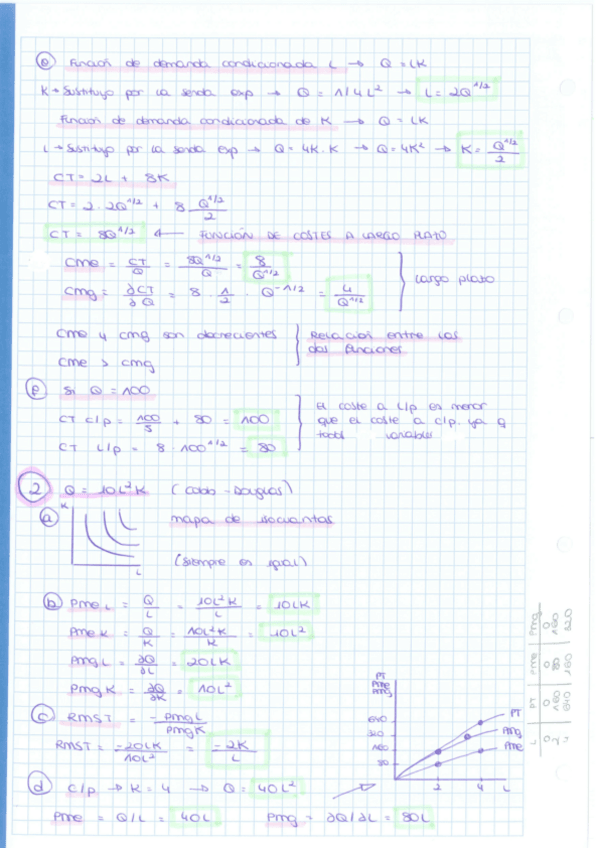 e) Función de demanda condicionada L → Q = LK
K → Sustituyo por la senda exp → Q = 1/4 L² → L = 2Q^1/2
Función de demanda condicionada de K → Q = LK
L → Sustituyo por la senda exp → Q = 4K·K → Q = 4K² → K = Q^1/2 / 2
CT = 2L + 8K
CT = 2·2Q^1/2 + 8 Q^1/2 / 2
CT = 8Q^1/2 ← FUNCIÓN DE COSTES A LARGO PLAZO
Cme = CT/Q = 8Q^1/2 / Q = 8 / Q^1/2
Cmg = ∂CT/∂Q = 8 · 1/2 · Q^-1/2 = 4 / Q^1/2
Largo plazo
Cme y Cmg son decrecientes
Cme > Cmg
Relación entre las
dos funciones
f) Si Q = 100
CT c/p = 100/5 + 80 = 100
CT L/p = 8 · 100^1/2 = 80
El coste a L/p es menor
que el coste a c/p. ya q
todos variables
2 Q = 10L²K (Cobb-Douglas)
a) K L mapa de isocuantas
(Siempre es igual)
b) Pme L = Q/L = 10L²K/L = 10LK
Pme K = Q/K = 10L²K/K = 10L²
Pmg L = ∂Q/∂L = 20LK
Pmg K = ∂Q/∂K = 10L²
c) RMST = -PmgL/PmgK
RMST = -20LK/10L² = -2K/L
d) c/p → K = 4 → Q = 40L²
Pme = Q/L = 40L Pmg = ∂Q/∂L = 80L
PT
Pme
Pmg
640
320
160
80
2 4 L
PT
Pmg
Pme
L PT Pme Pmg
0 0 0 0
2 160 80 160
4 640 160 320